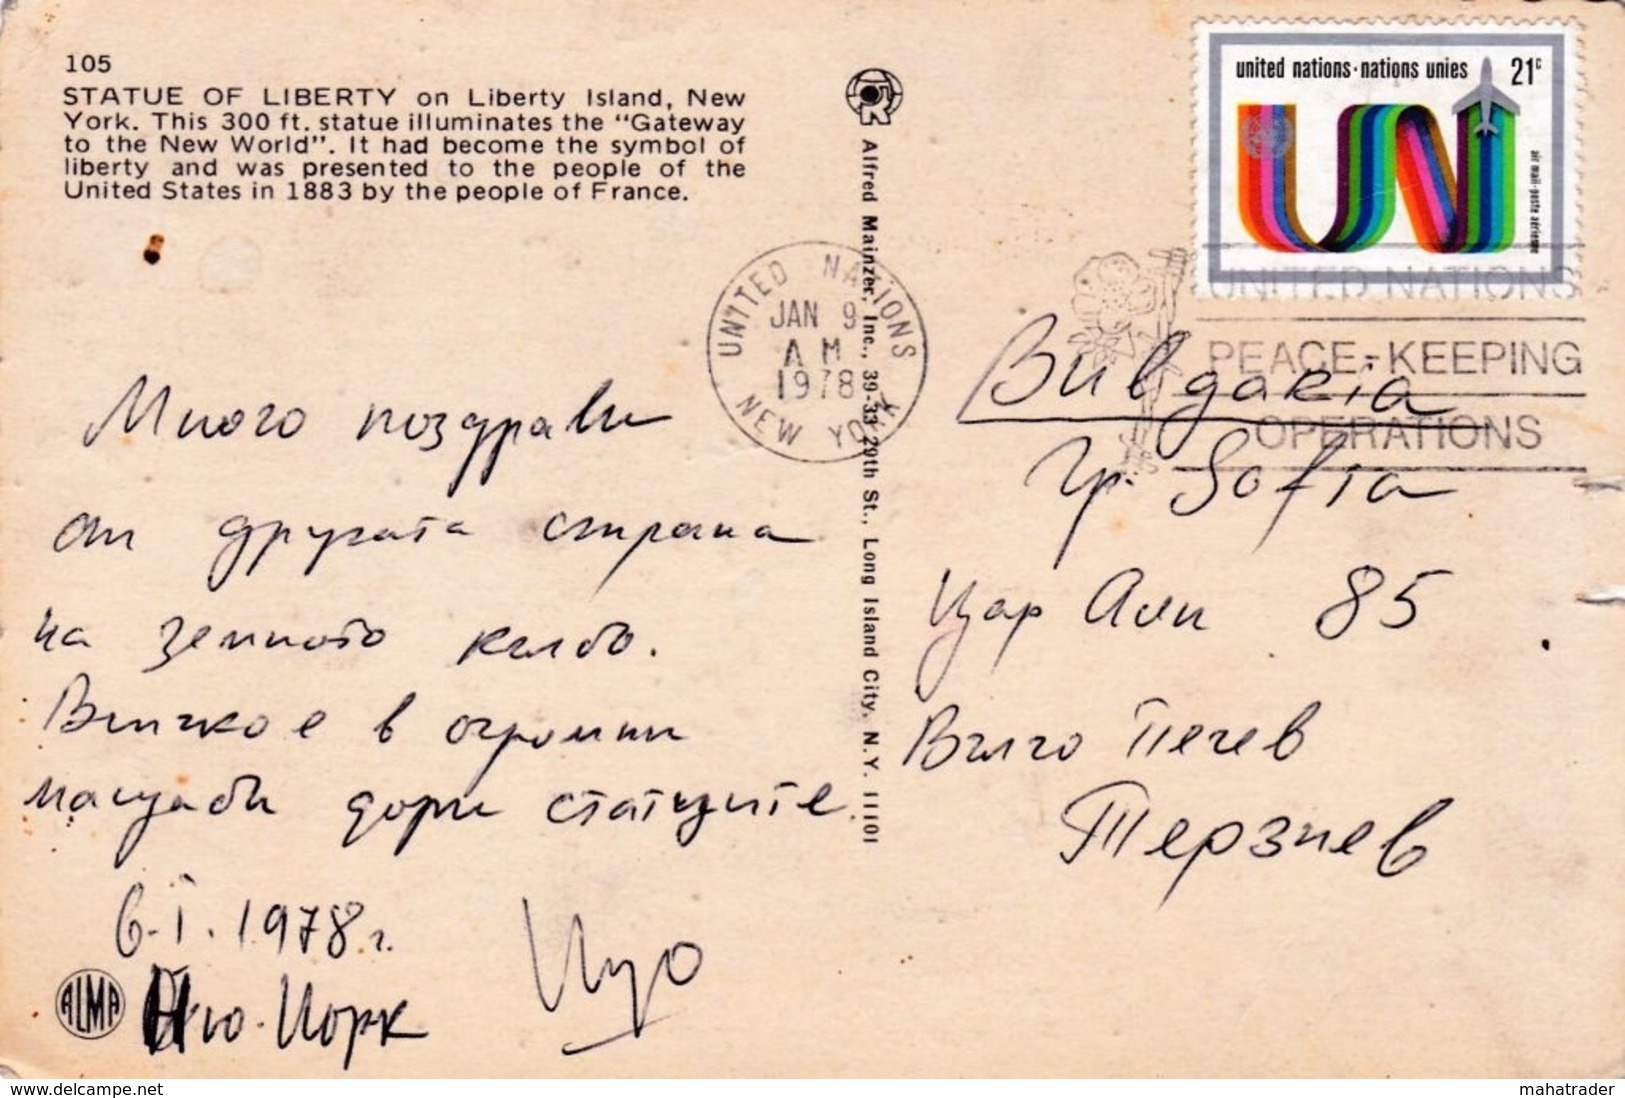 105
STATUE OF LIBERTY on Liberty Island, New
York. This 300 ft. statue illuminates the "Gateway
to the New World". It had become the symbol of
liberty and was presented to the people of the
United States in 1883 by the people of France.
Много поздрави
от другата страна
на земното кълбо.
Всичко е в огромни
мащаби дори статуите.
6.I.1978 г.
Ню-Йорк
ALMA
Alfred Mainzer, Inc., 39-33 29th St., Long Island City, N.Y. 11101
UNITED NATIONS
JAN 9
AM
1978
NEW YORK
united nations·nations unies 21c
air mail·poste aérienne
UNITED NATIONS
PEACE-KEEPING
OPERATIONS
Bulgaria
гр. Sofia
Цар Асен 85
Вълчо Печев
Терзиев
www.delcampe.net
mahatrader